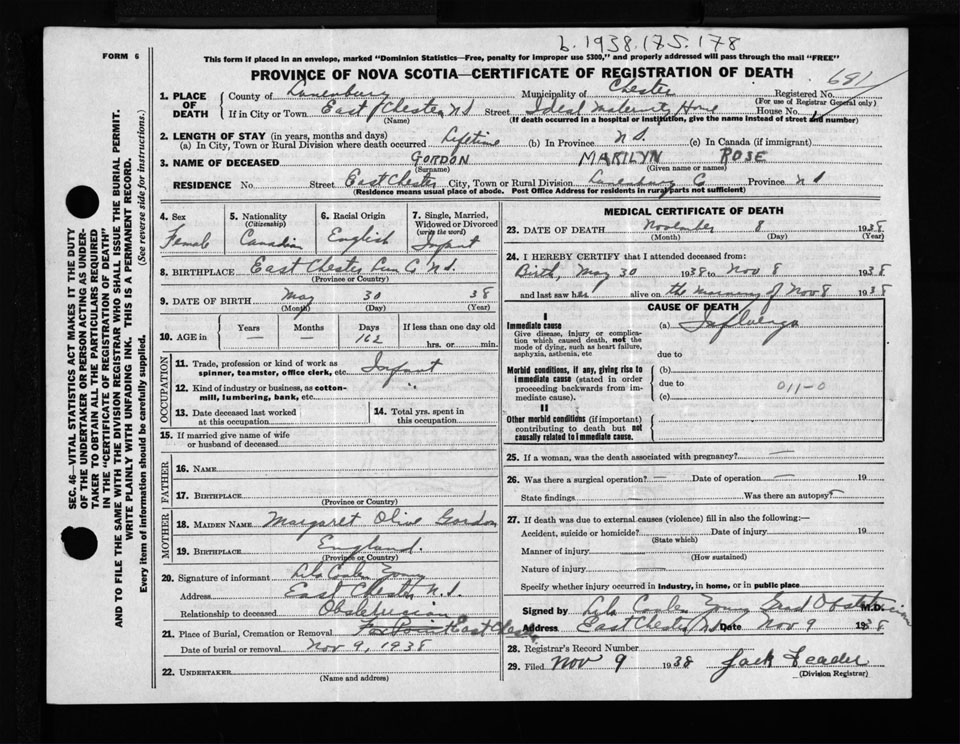 b. 1938.175.178
FORM 6
This form if placed in an envelope, marked "Dominion Statistics—Free, penalty for improper use $300," and properly addressed will pass through the mail "FREE"
PROVINCE OF NOVA SCOTIA—CERTIFICATE OF REGISTRATION OF DEATH
681
1. PLACE OF DEATH County of Lunenburg Municipality of Chester Registered No.
(For use of Registrar General only)
If in City or Town East Chester, N S Street Ideal Maternity Home House No.
(Name) (If death occurred in a hospital or institution, give the name instead of street and number)
2. LENGTH OF STAY (in years, months and days)
(a) In City, Town or Rural Division where death occurred Lifetime (b) In Province N S. (c) In Canada (if immigrant)
3. NAME OF DECEASED GORDON MARILYN ROSE
(Surname) (Given name or names)
RESIDENCE No. Street East Chester City, Town or Rural Division Lunenburg Co Province N S
(Residence means usual place of abode. Post Office Address for residents in rural parts not sufficient)
SEC. 46—VITAL STATISTICS ACT MAKES IT THE DUTY
OF THE UNDERTAKER OR PERSON ACTING AS UNDER-
TAKER TO OBTAIN ALL THE PARTICULARS REQUIRED
IN THE "CERTIFICATE OF REGISTRATION OF DEATH"
AND TO FILE THE SAME WITH THE DIVISION REGISTRAR WHO SHALL ISSUE THE BURIAL PERMIT.
WRITE PLAINLY WITH UNFADING INK. THIS IS A PERMANENT RECORD.
Every item of information should be carefully supplied. (See reverse side for instructions.)
4. Sex Female
5. Nationality (Citizenship) Canadian
6. Racial Origin English
7. Single, Married, Widowed or Divorced (write the word) Infant
8. BIRTHPLACE East Chester Lun Co N S.
(Province or Country)
9. DATE OF BIRTH May 30 38
(Month) (Day) (Year)
10. AGE in Years — Months — Days 162 If less than one day old
hrs. or min.
OCCUPATION
11. Trade, profession or kind of work as spinner, teamster, office clerk, etc. Infant
12. Kind of industry or business, as cotton-mill, lumbering, bank, etc. "
13. Date deceased last worked at this occupation
14. Total yrs. spent in this occupation
15. If married give name of wife or husband of deceased
FATHER
16. NAME
17. BIRTHPLACE
(Province or Country)
MOTHER
18. MAIDEN NAME Margaret Olive Gordon
19. BIRTHPLACE England.
(Province or Country)
20. Signature of informant Lila Coolen Young
Address East Chester, N.S.
Relationship to deceased Obstetrician
21. Place of Burial, Cremation or Removal East Chester
Date of burial or removal Nov 9, 1938
22. UNDERTAKER
(Name and address)
MEDICAL CERTIFICATE OF DEATH
23. DATE OF DEATH November 8 1938
(Month) (Day) (Year)
24. I HEREBY CERTIFY that I attended deceased from:
Birth, May 30 1938 to Nov 8 1938
and last saw her alive on the morning of Nov 8 1938
CAUSE OF DEATH
I
Immediate cause (a) Influenza
Give disease, injury or complication which caused death, not the mode of dying, such as heart failure, asphyxia, asthenia, etc
due to
Morbid conditions, if any, giving rise to immediate cause (stated in order proceeding backwards from immediate cause).
(b)
due to 011-0
(c)
II
Other morbid conditions (if important) contributing to death but not causally related to immediate cause.
25. If a woman, was the death associated with pregnancy? —
26. Was there a surgical operation? — Date of operation — 19
State findings — Was there an autopsy?
27. If death was due to external causes (violence) fill in also the following:—
Accident, suicide or homicide? Date of injury 19
(State which)
Manner of injury
(How sustained)
Nature of injury
Specify whether injury occurred in industry, in home, or in public place
Signed by Lila Coolen Young Grad Obstetrician M.D.
Address East Chester, N.S. Date Nov 9 1938
28. Registrar's Record Number
29. Filed Nov 9 1938 Jack Leader
(Division Registrar)